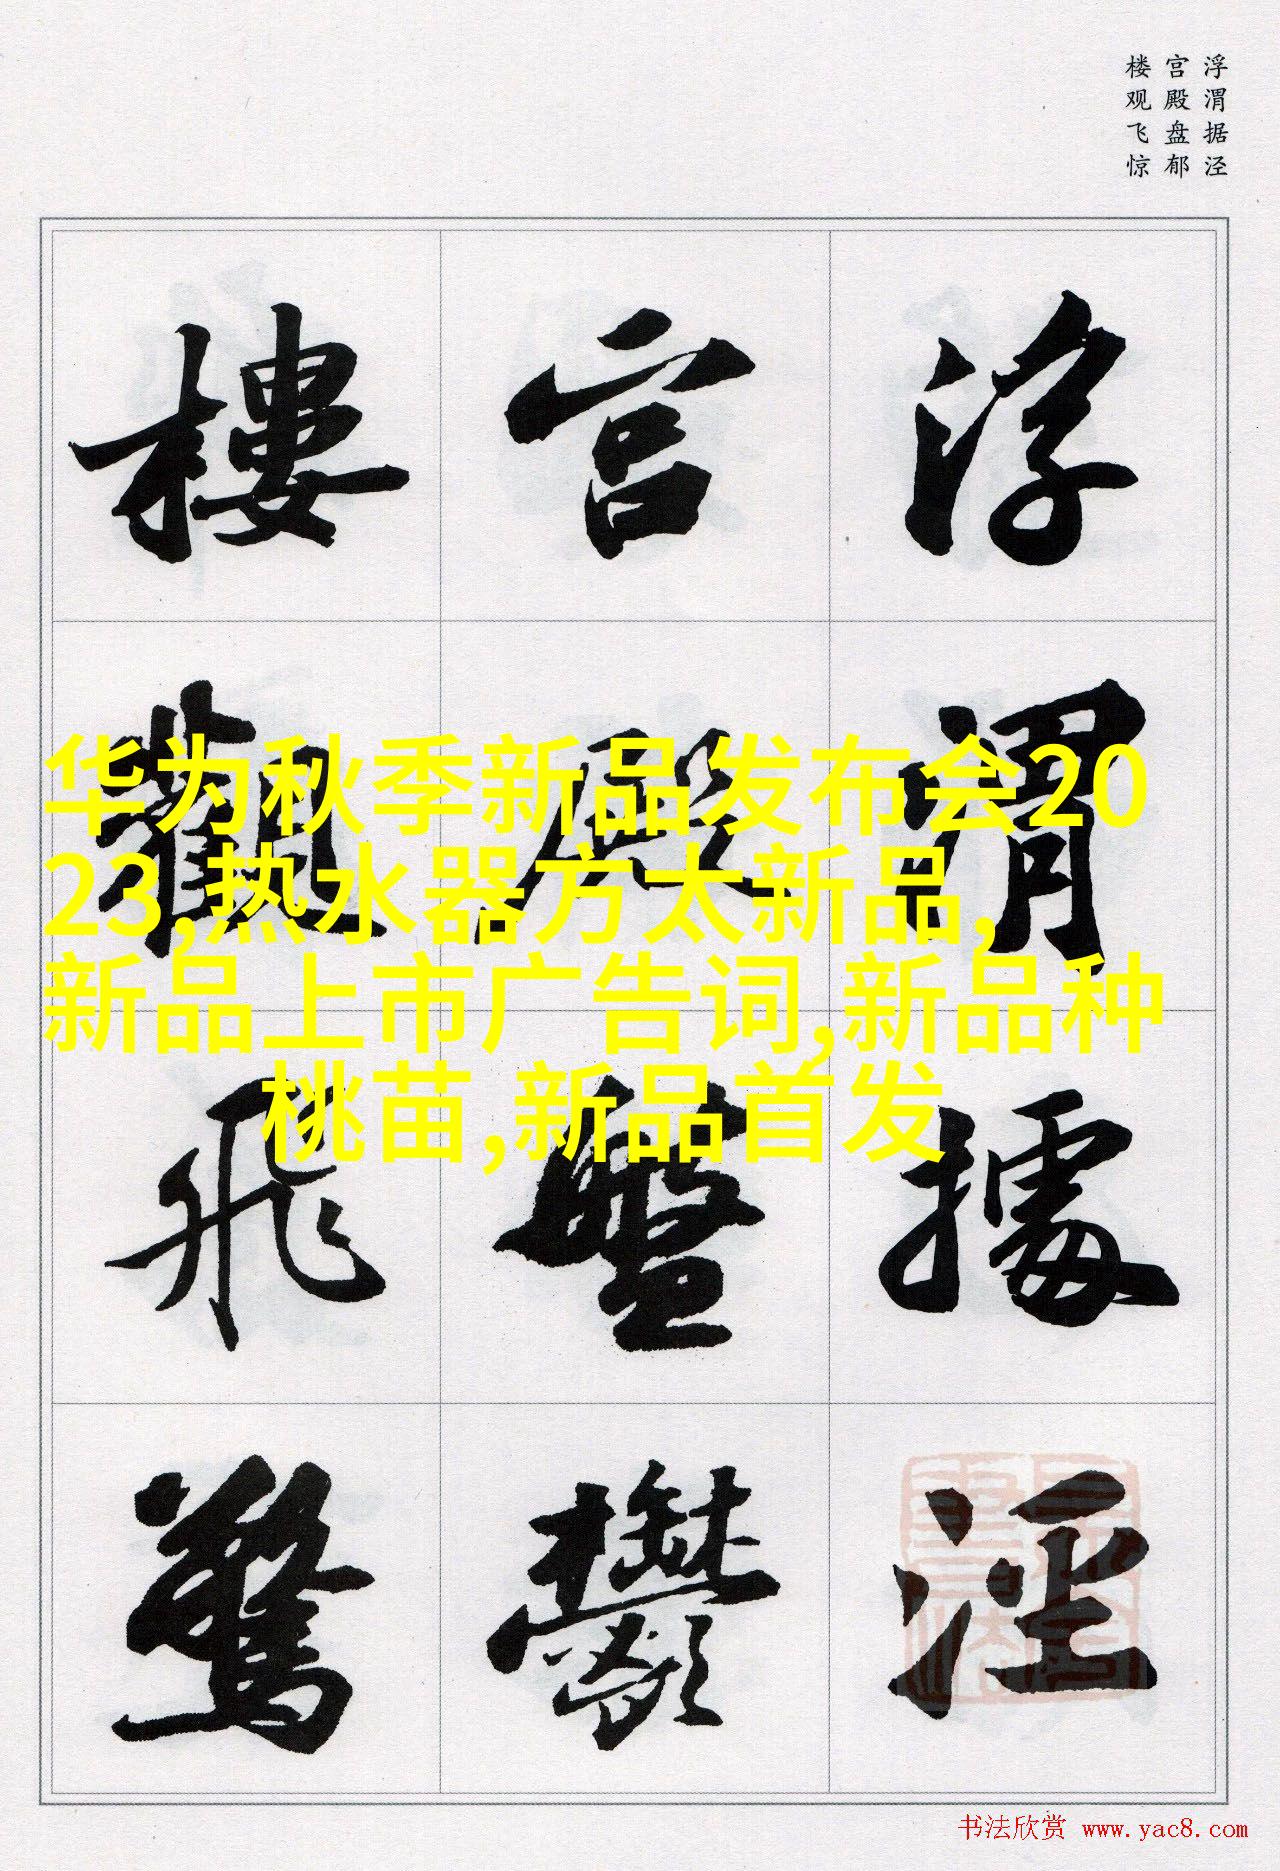 浮渭据泾
宫殿盘郁
楼观飞惊
浮渭據涇
宮殿盤鬱
樓觀飛驚
华为秋季新品发布会20
23,热水器方太新品,
新品上市广告词,新品种
桃苗,新品首发
书法欣赏 www.yac8.com